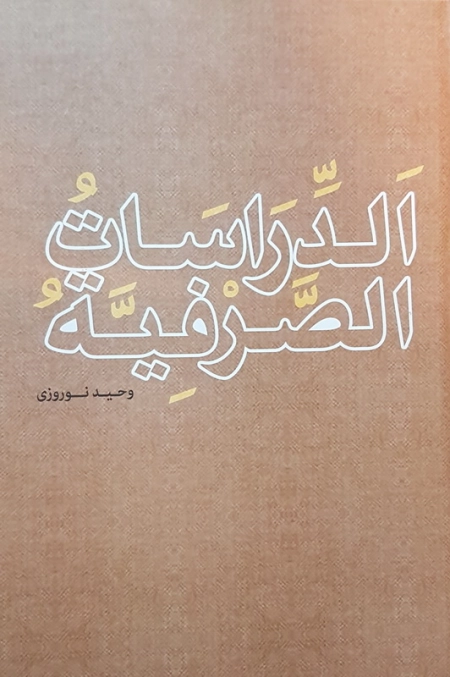 اَلدِّرَاسَاتُ
الصَّرْفِیَّهُ
وحید نوروزی